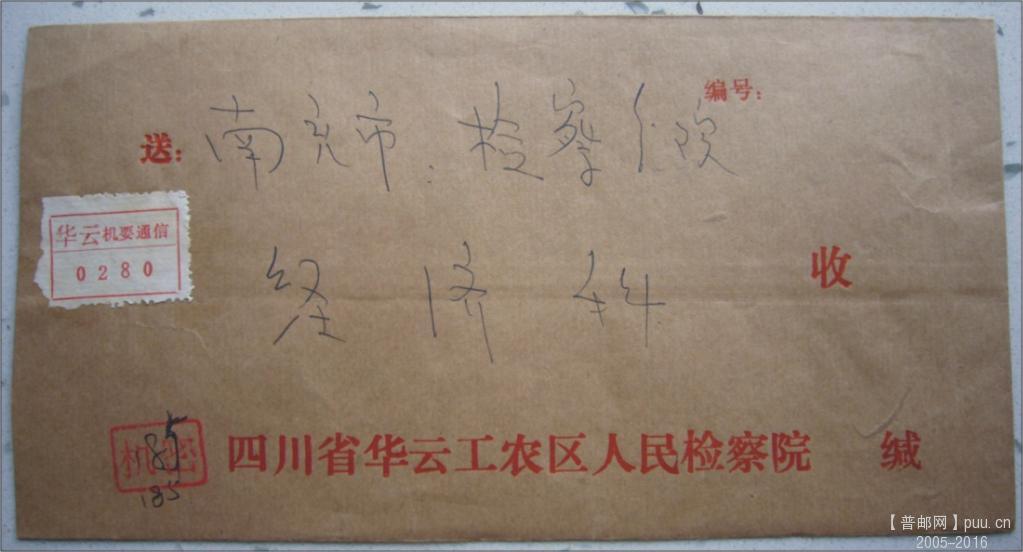 编号：
送：南充市.检察院
华云机要通信
0280
经济科
收
机密
85
185
四川省华云工农区人民检察院 缄
【普邮网】puu.cn
2005-2016